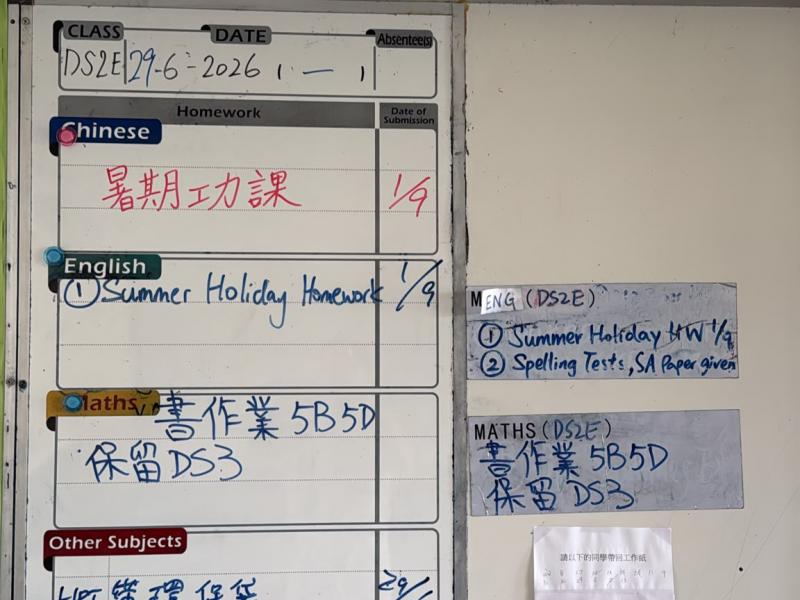 CLASS DATE Absentee(s)
DS2E 29-6-2026
Homework Date of Submission
Chinese
暑期功課 1/9
English
① Summer Holiday Homework 1/9
Maths
書作業 5B5D
保留 DS3
Other Subjects
環保袋 29/
MENG (DS2E)
① Summer Holiday HW 1/9
② Spelling Tests, SA Paper given
MATHS (DS2E)
書作業 5B5D
保留 DS3
請以下的同學帶回工作紙